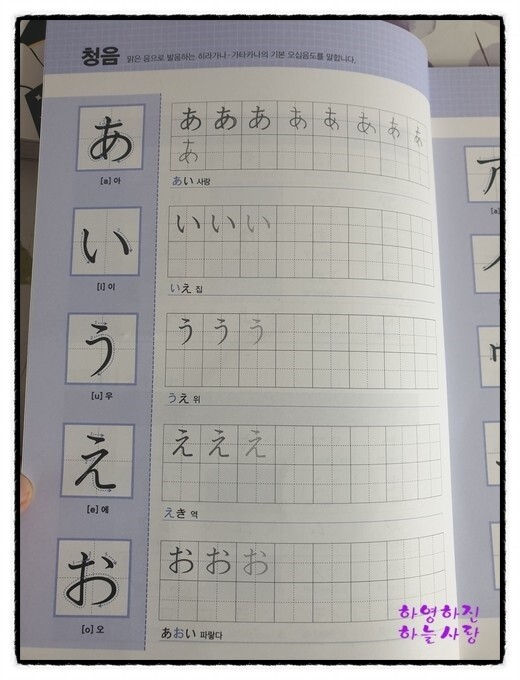 청음 맑은 음으로 발음하는 히라가나·가타카나의 기본 오십음도를 말합니다.
あ あ あ あ あ あ あ あ あ
あ
[a] 아
あい 사랑
い い い い
[i] 이
いえ 집
う う う う
[u] 우
うえ 위
え え え え
[e] 에
えき 역
お お お お
[o] 오
あおい 파랗다
하영하진
하늘사랑